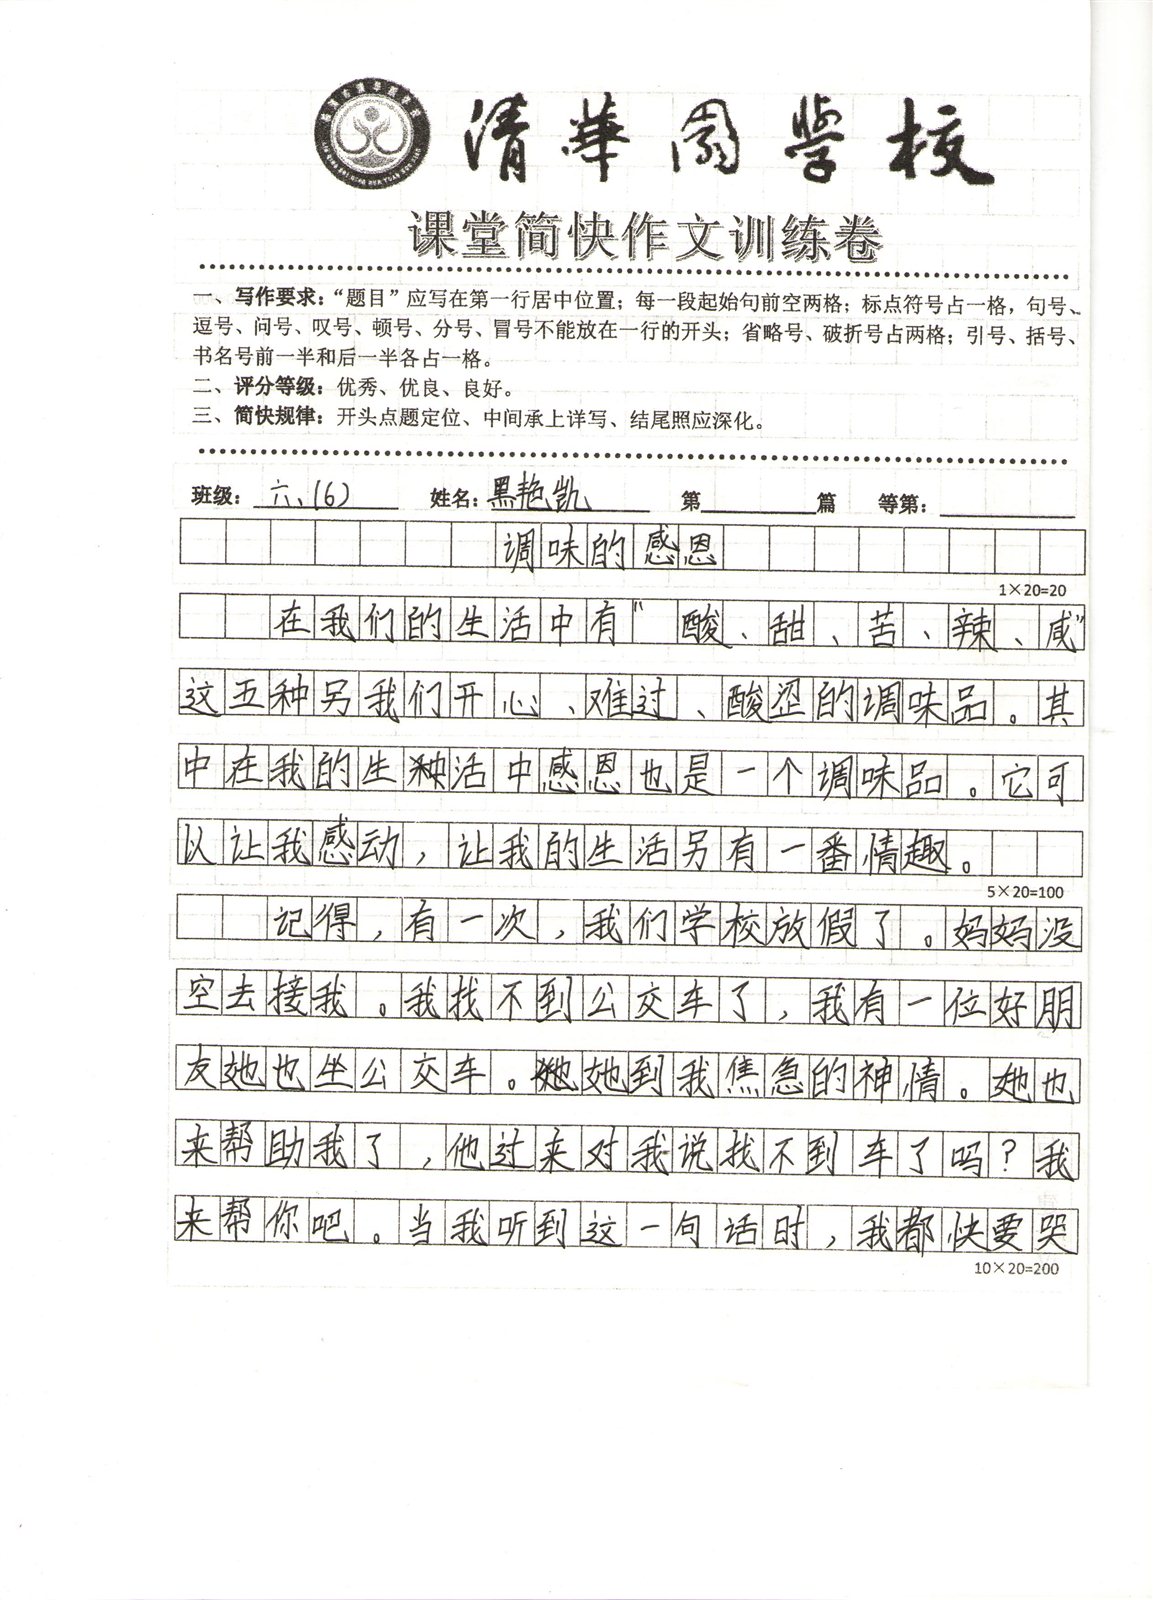 清華園學校
课堂简快作文训练卷
一、写作要求：“题目”应写在第一行居中位置；每一段起始句前空两格；标点符号占一格，句号、
逗号、问号、叹号、顿号、分号、冒号不能放在一行的开头；省略号、破折号占两格；引号、括号、
书名号前一半和后一半各占一格。
二、评分等级：优秀、优良、良好。
三、简快规律：开头点题定位、中间承上详写、结尾照应深化。
班级：六、(6) 姓名：黑艳凯 第 篇 等第：
调味的感恩
1×20=20
在我们的生活中有“酸、甜、苦、辣、咸”
这五种另我们开心、难过、酸涩的调味品。其
中在我的生活中感恩也是一个调味品。它可
以让我感动，让我的生活另有一番情趣。
5×20=100
记得，有一次，我们学校放假了。妈妈没
空去接我。我找不到公交车了，我有一位好朋
友她也坐公交车。她到我焦急的神情。她也
来帮助我了，他过来对我说找不到车了吗？我
来帮你吧。当我听到这一句话时，我都快要哭
10×20=200